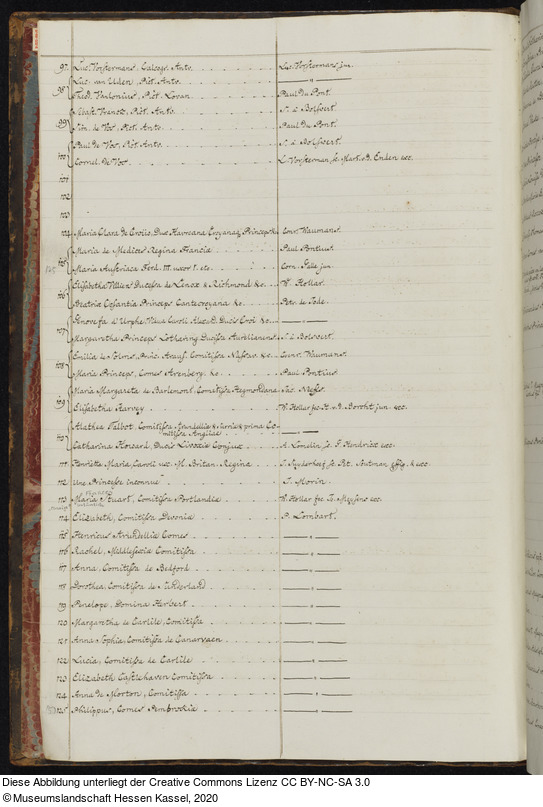 97. Luc. Vorstermans, Calcogr. Antv. Luc. Vorstermans, jun.
98 Luc. van Uden, Pict. Antv. — " —
Theod. Vanlonius, Pict. Lovan. Paul du Pont.
99 Sebast. Vrancx, Pict. Antv. S. à Bolswert
Sim. de Vos, Pict. Antv. Paul du Pont.
100 Paul de Vos, Pict. Antv. S. à Bolswert.
Cornel. de Vos L. Vorsterman, fe. Mart. v.d. Enden exc.
101
102
103
104 Maria Clara de Croiio, Dux Havreana Croyanaq Princeps Conr. Waumans.
105 Maria de Medices Regina Franciæ Paul Pontius.
Maria Austriaca Ferd. III. uxor 1. etc. Corn. Galle jun.
106 Elisabetha Villiers Ducissa de Lenox & Richmond &c. W. Hollar.
Beatrix Cosantia Princeps Cantecroyana &c. Petr. de Jode.
107 Genovefa d'Urphe, Vidua Caroli Alexand. Ducis Croii &c. — " —
Margaretha Princeps Lotharing. Ducissa Aurelianens. S. à Bolswert.
108 Emilia de Solms, Princ. Arauf. Comitissa Nassov. &c. Conr. Waumans.
Maria Princeps, Comes Arenberg. &c. Paul Pontius
109 Maria Margareta de Barlemont. Comitissa Hegmondana Jac. Neffs.
Elisabetha Harvey W. Hollar fec. H. v.d. Borcht jun. exc.
110 Alathea Talbot. Comitissa Arundelliæ & Surriæ & prima Co-
mitissa Angliæ — " —
Catharina Howard, Ducis Livoxiæ Conjux A. Lomelin sc. G. Hendricx exc.
111 Henriette Marie, Caroli ux. M. Britan. Regina J. Suyderhoef sc. Pet. Soutman effig. & exc
112 Une Princesse inconnue J. Morin.
113 Maria Stuart, Comitissa Portlandiæ W. Hollar fec. J. Meyssens exc.
114 Elizabeth, Comitissa Devoniæ P. Lombart.
115 Henricus Arundelliæ Comes — " —
116 Rachel, Middlesexiæ Comitissa — " —
117 Anna, Comitissa de Bedford — " —
118 Dorothea, Comitissa de Sunderland — " —
119 Penelope, Domina Herbert — " —
120 Margaretha de Carlile, Comitissa — " —
121 Anna Sophia, Comitissa de Canarvaen — " —
122 Lucia, Comitissa de Carlile — " —
123 Elizabeth Castlehaven Comitissa — " —
124 Anna de Morton, Comitissa — " —
125 Philippus, Comes Pembrokiæ — " —
Diese Abbildung unterliegt der Creative Commons Lizenz CC BY-NC-SA 3.0
©Museumslandschaft Hessen Kassel, 2020